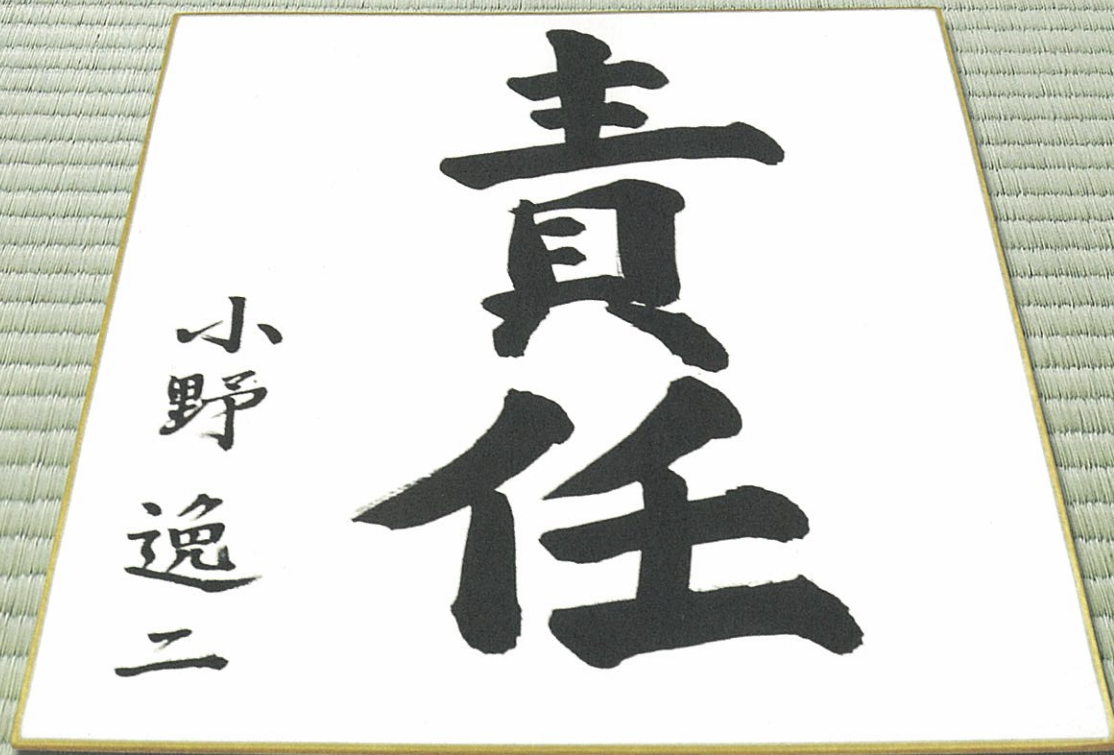 責任
小野逸二